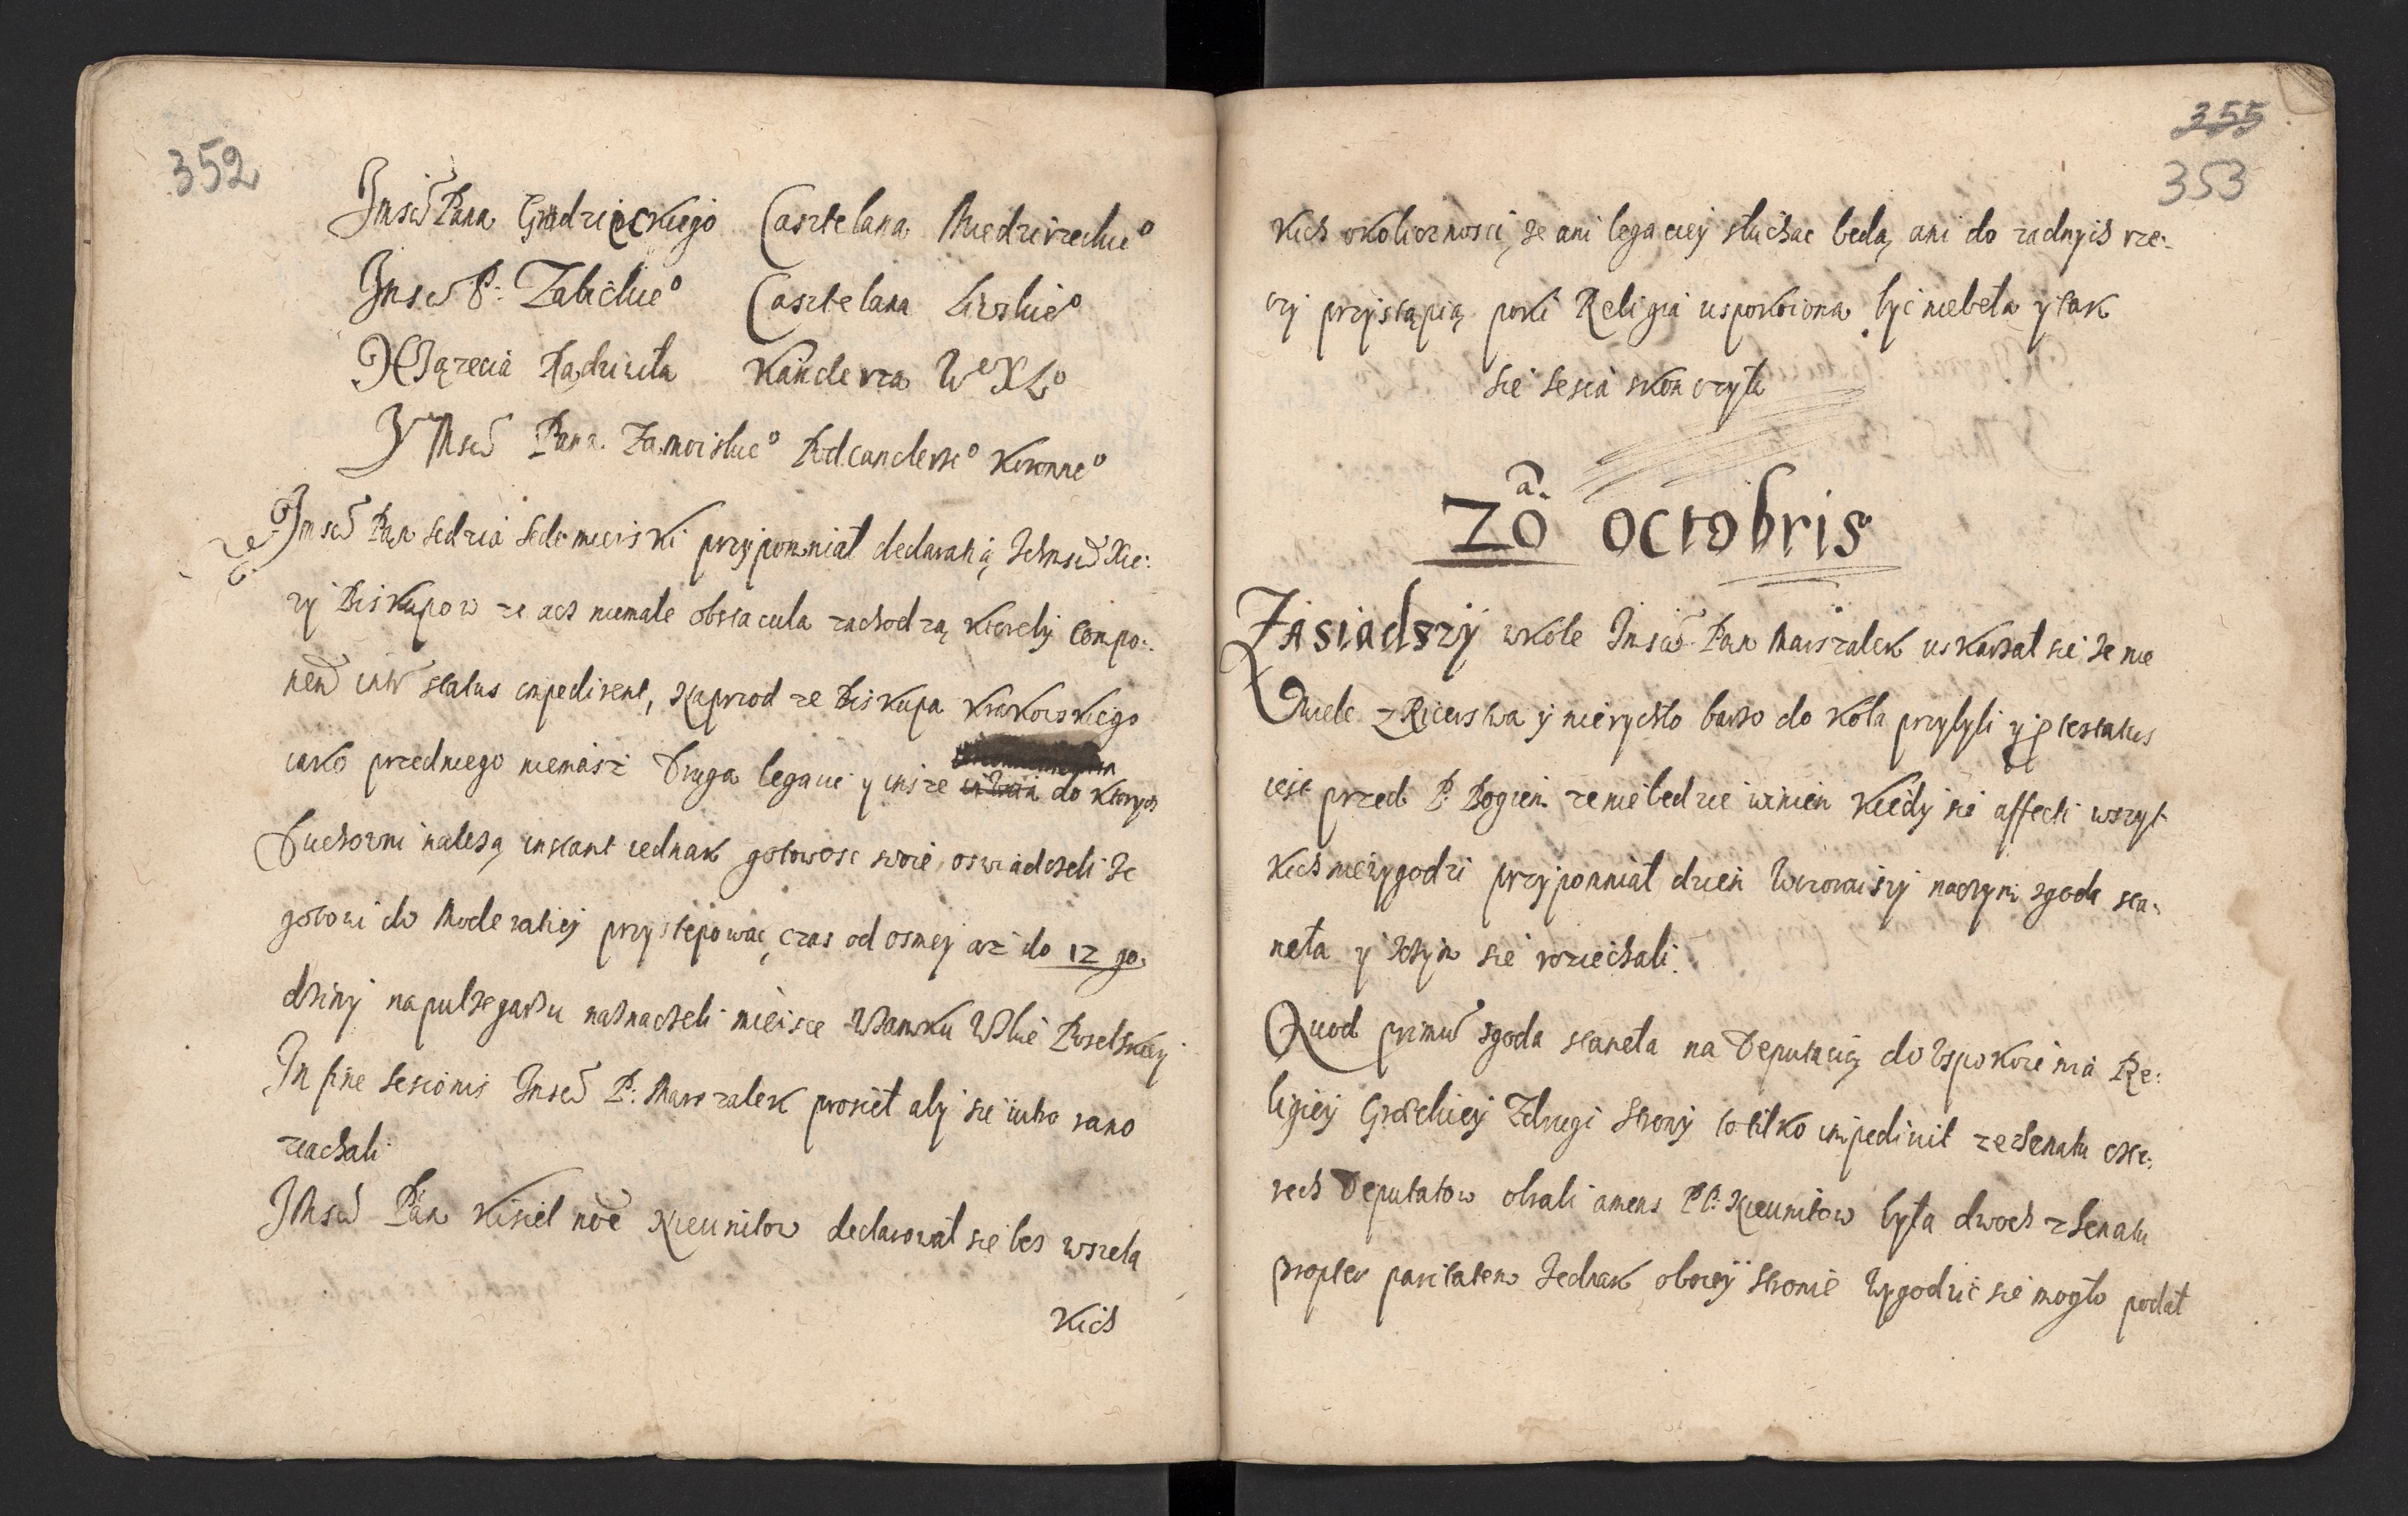 352
Jmsci Pana Grudzieckiego Casztelana Miedzirzeckie°
Jmsci P: Zabickie° Casztelana Liwskie°
XJązecia Radziwiła Kanclerza W° X L°
Y Msci Pana Zamoiskie° Podcanclerze° Koronne°
Jmsci Pan sedzia Sedomierski przypomniał declaratią Ichmsci Xie:
zy Biskupow ze acs niemałe obstacula zachodzą ktoreby compo:
nend status impedirent, Naprzod ze Biskupa Krakowskiego
iako przedniego niemasz Druga legacie y insze do ktorych
Duchowni należą instant iednak gotowosc swoię oswiadczeli że
gotowi do Moderatiey przystępować, czas od osmey asz do 12 go:
dziny napulzegarzu naznaczeli mieisce Wzamku WIzbie Poselskiey
In fine sessionis Jmsci P: Marszalek prosieł aby sie iutro rano
ziachali
JMsci Pan Kisiel noe Nieunitow declarował sie bes wszela
kich
355
353
kich okolicznosci, że ani legaciey słuchac będą, ani do zadnych rze:
czy przystąpią poki Religia uspokoiona być niebeła y tak
się sesia skonczyła
20 a. octobris
Zasiadszy wkole Jmsci Pan Marszalek uskarżał sie że nie
Wiele z Ricerstwa y nierychło barzo do koła przybyli y ptestatus
iest przed P. Bogiem ze niebedzie winien kiedy sie affecti wszyt
kich niezgodzi przypomniał dzien Wczoraiszy naczym zgoda sta:
neła y sczym sie rozиechali.
Quod primū zgoda staneła na Deputacią do Uspokoienia Re:
ligiey Greckiey Zdrugi strony to tilko impediuit ze zSenatu czte:
rech Deputatow obrali a mens PP. Nieunitow była dwoch z Senatu
propter paritatem Jednak obocey stronie Wygodzić sie mogło podał